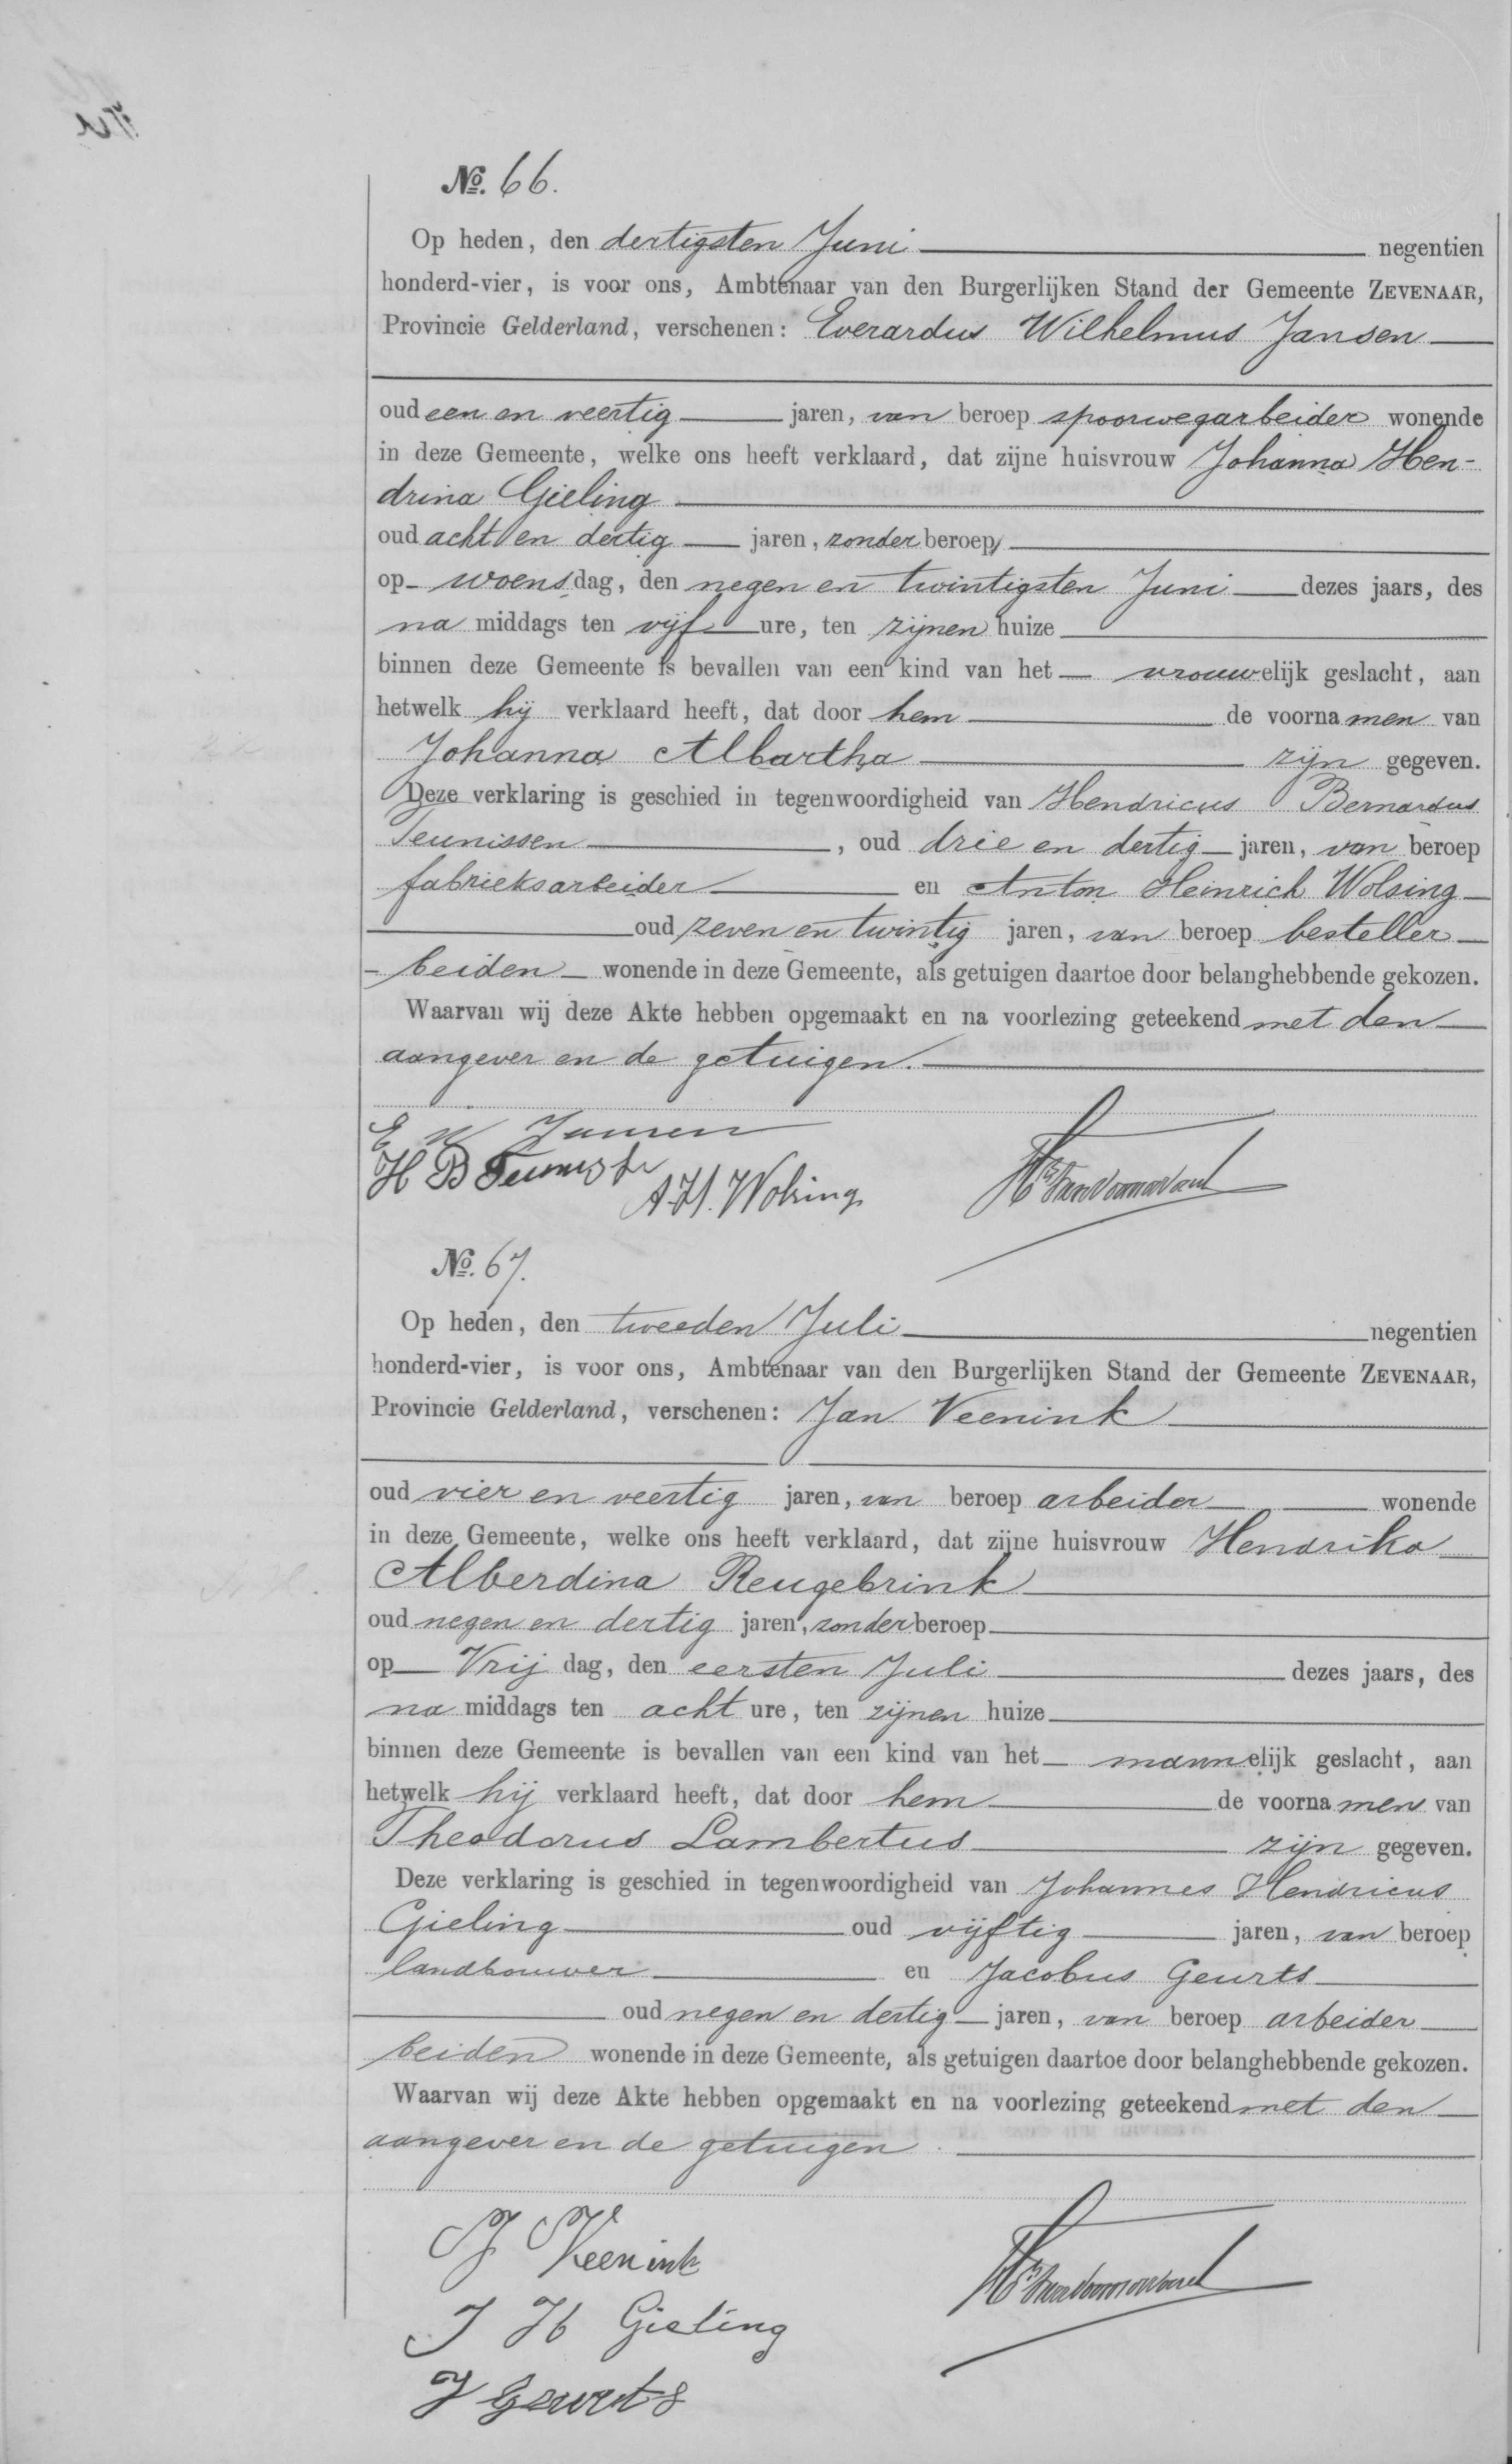 №. 66.
Op heden, den dertigsten Juni negentien
honderd-vier, is voor ons, Ambtenaar van den Burgerlijken Stand der Gemeente ZEVENAAR,
Provincie Gelderland, verschenen: Everardus Wilhelmus Jansen
oud een en veertig jaren, van beroep spoorwegarbeider wonende
in deze Gemeente, welke ons heeft verklaard, dat zijne huisvrouw Johanna Hen-
drina Gieling
oud acht en dertig jaren, zonder beroep,
op woensdag, den negen en twintigsten Juni dezes jaars, des
na middags ten vijf ure, ten zijnen huize
binnen deze Gemeente is bevallen van een kind van het vrouwelijk geslacht, aan
hetwelk hij verklaard heeft, dat door hem de voornamen van
Johanna Albartha zijn gegeven.
Deze verklaring is geschied in tegenwoordigheid van Hendricus Bernardus
Teunissen, oud drie en dertig jaren, van beroep
fabrieksarbeider en Anton Heinrich Wolsing
oud zeven en twintig jaren, van beroep besteller
beiden wonende in deze Gemeente, als getuigen daartoe door belanghebbende gekozen.
Waarvan wij deze Akte hebben opgemaakt en na voorlezing geteekend met den
aangever en de getuigen.
E W Jansen
H B
A. H. Wolsing
№. 67.
Op heden, den tweeden Juli negentien
honderd-vier, is voor ons, Ambtenaar van den Burgerlijken Stand der Gemeente ZEVENAAR,
Provincie Gelderland, verschenen: Jan Veenink
oud vier en veertig jaren, van beroep arbeider wonende
in deze Gemeente, welke ons heeft verklaard, dat zijne huisvrouw Hendrika
Alberdina Reugebrink
oud negen en dertig jaren, zonder beroep
op Vrijdag, den eersten Juli dezes jaars, des
na middags ten acht ure, ten zijnen huize
binnen deze Gemeente is bevallen van een kind van het mannelijk geslacht, aan
hetwelk hij verklaard heeft, dat door hem de voornamen van
Theodorus Lambertus zijn gegeven.
Deze verklaring is geschied in tegenwoordigheid van Johannes Hendricus
Gieling oud vijftig jaren, van beroep
landbouwer en Jacobus Geurts
oud negen en dertig jaren, van beroep arbeider
beiden wonende in deze Gemeente, als getuigen daartoe door belanghebbende gekozen.
Waarvan wij deze Akte hebben opgemaakt en na voorlezing geteekend met den
aangever en de getuigen.
J Veenink
J H Gieling
J Geurts